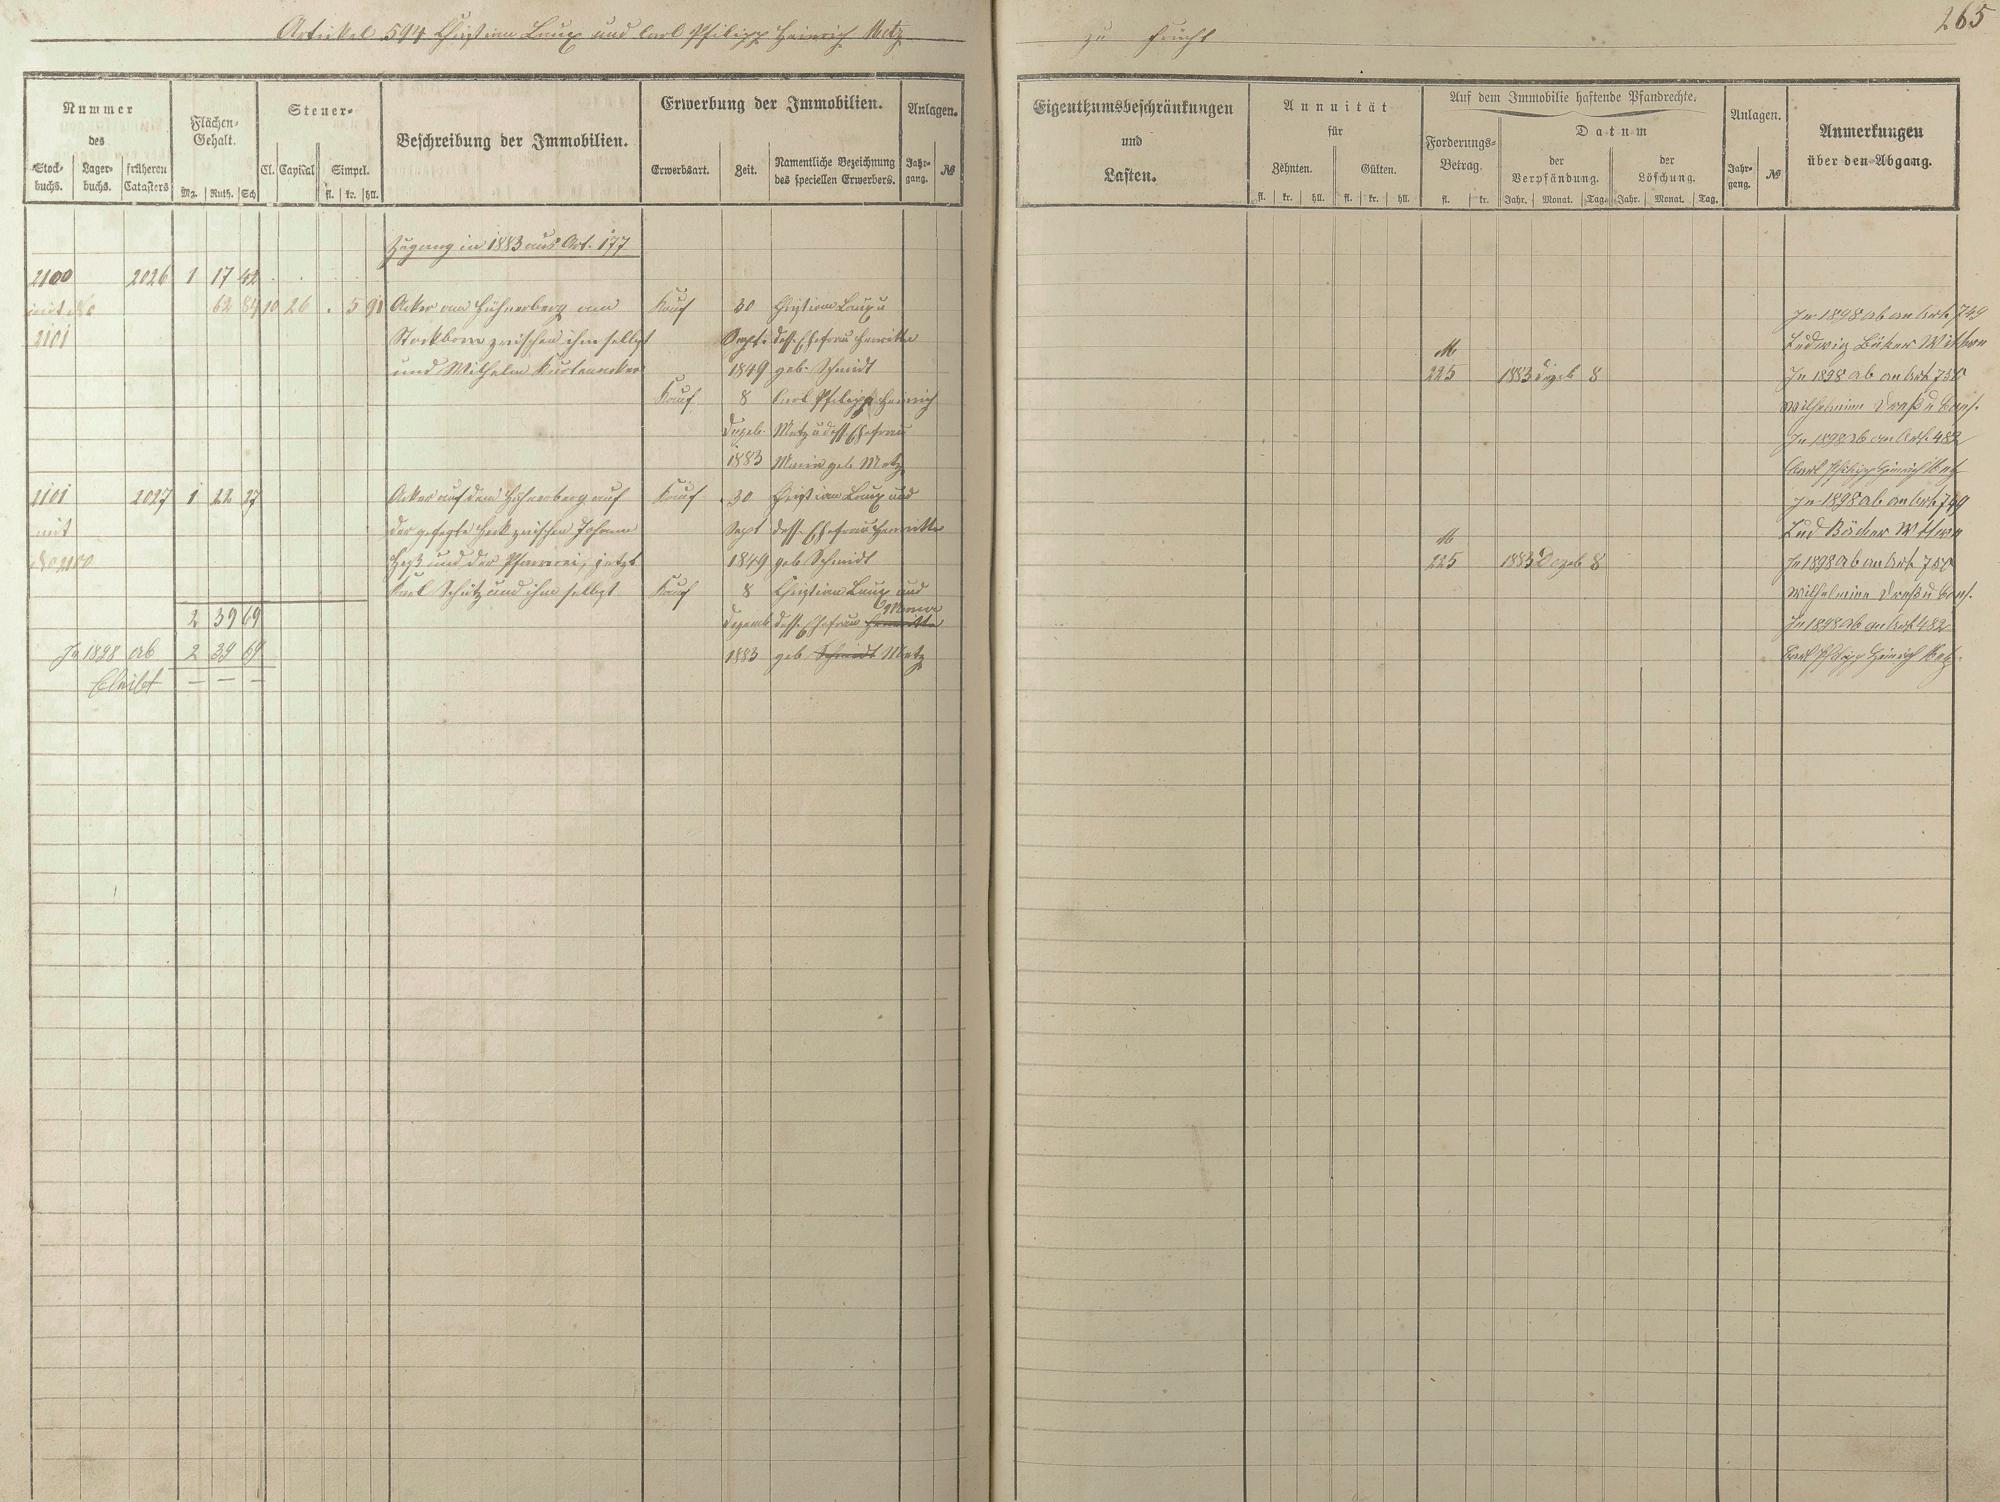 Artikel 594 Christian Laux und Carl Philipp Heinrich Metz
zu Frücht
265
Nummer
des
Stock-
buchs.
Lager-
buchs.
früheren
Catasters
Flächen-
Gehalt.
Mg.
Ruth.
Sch
Steuer-
Cl.
Capital
Simpel.
fl.
kr.
hll.
Beschreibung der Immobilien.
Erwerbung der Immobilien.
Erwerbsart.
Zeit.
Namentliche Bezeichnung
des speciellen Erwerbers.
Anlagen.
Jahr-
gang.
№
Eigenthumsbeschränkungen
und
Lasten.
Annuität
für
Zehnten.
Gülten.
fl. kr. hll. fl. kr. hll.
Auf dem Immobilie haftende Pfandrechte.
Forderungs-
Betrag.
fl. kr.
Datum
der
Verpfändung.
Jahr. Monat. Tag.
der
Löschung.
Jahr. Monat. Tag.
Anlagen.
Jahr-
gang.
№
Anmerkungen
über den Abgang.
Zugang in 1883 aus Art. 177
2100 2026 1 17 42
mit No 62 84 10 26 . 5 91 Acker am Hühnerberg am Kauf 30 Christian Laux u
2101 Stockborn zwischen ihm selbst Sept. dess. Ehefrau Henritte
und Wilhelm 1849 geb. Schmidt
Kauf 8 Carl Philipp Heinrich
Dezeb. Metz u dess Ehefrau
1883 Maria geb Metz
M
225 1883 Dezeb 8
In 1898 ab an Art 749
Ludwig Wittwe
In 1898 ab an Art 750
Wilhelmine u Cons.
In 1898 ab an Art. 482
Carl Philipp Heinrich Metz
2101 2027 1 22 27 Acker auf dem Hühnerberg auf Kauf 30 Christian Laux und
mit der zwischen Johann Sept dess. Ehefrau Henritte
No 2100 Heß und der Pfarrerei, jetzt 1849 geb Schmidt
Karl Schütz und ihm selbst Kauf 8 Christian Laux und
Maria
2 39 69 Dezemb dess. Ehefrau Henritte
In 1898 ab 2 39 69 1883 geb Schmidt Metz
bleibt — — —
M
225 1883 Dezeb 8
In 1898 ab an Art 749
Lud Wittwe
In 1898 ab an Art 750
Wilhelmine u Cons.
In 1898 ab an Art 482
Carl Philipp Heinrich Metz